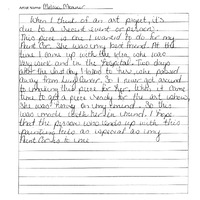 Artist Name
When I think of an art project, it's
due to a recent event or person.
This piece is one I wanted to do for my
Aunt Cor. She was my best friend. At the
time I came up with the idea, she was
very sick and in the hospital. Two days
after the last day I talked to her, she passed
away from cancer. So I never got around
to making this piece for her. When it came
time to get a piece ready for the art show,
she was heavy on my mind. So this
was made with her in mind. I hope
that the person who ends up with this
painting feels as special as my
Aunt Cor is to me